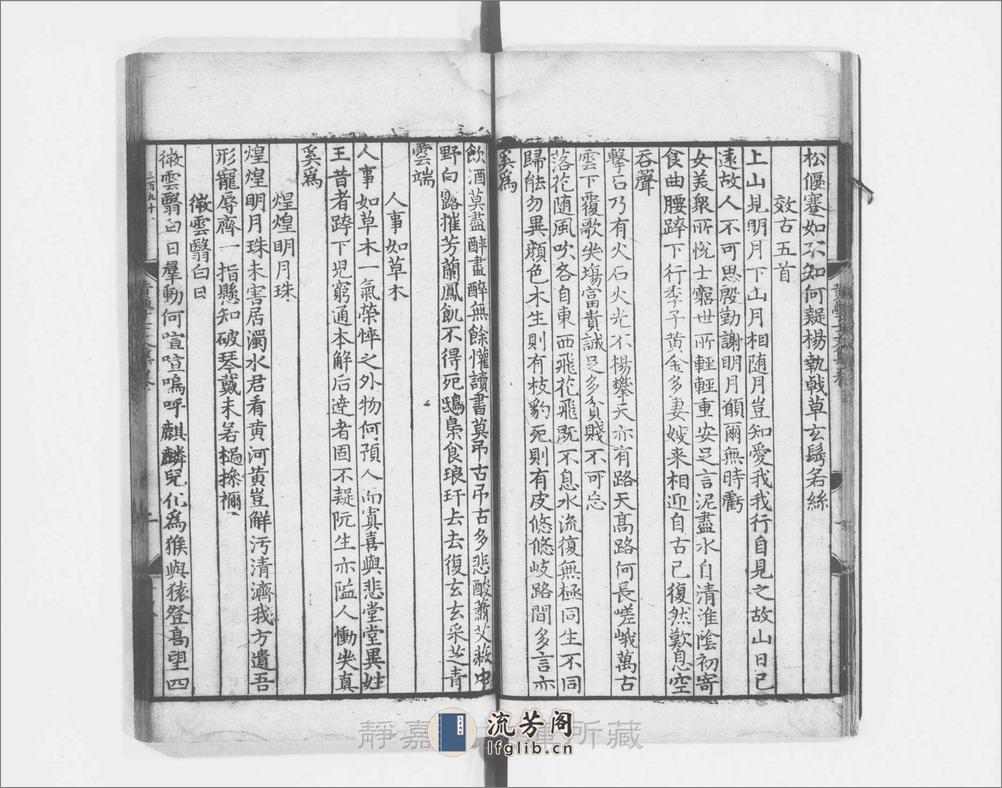 松偃蹇如不知何疑楊執戟草玄鬂若絲
效古五首
上山見明月下山月相随月豈知愛我我行自見之故山日已
遠故人不可思殷勤謝明月頎爾無時虧
女美衆所悅士窮世所輕輕重安足言泥盡水自清淮陰初寄
食曲腰蹄下行季子黄金多妻嫂来相迎自古已復然歎息空
吞聲
擊石乃有火石火光不揚攀天亦有路天髙路何長嵯峨萬古
雲下覆歌坐塲富貴誠足多貧賤不可忘
落花随風吹各自東西飛花飛既不息水流復無極同生不同
歸能勿異顔色木生則有枝豹死則有皮悠悠岐路間多言亦
奚為
飲酒莫盡醉盡醉無餘懽讀書莫吊古吊古多悲酸蕭艾蔽中
野白露摧芳蘭鳳飢不得死鵄梟食琅玕去去復玄玄采芝青
雲端
人事如草木
人事如草木一氣榮悴之外物何預人而寘喜與悲堂堂異姓
王昔者蹄下兒窮通本解后達者固不疑阮生亦隘人慟失真
奚為
煌煌明月珠
煌煌明月珠未害居濁水君看黄河黄豈解汚清濟我方遺吾
形寵辱齊一指懸知破琴戴未若檛摻禰
微雲翳白日
微雲翳白日羣動何喧喧嗚呼麒麟兒化為猴與猿登髙望四
靜嘉 所藏
流芳阁
lfglib.cn